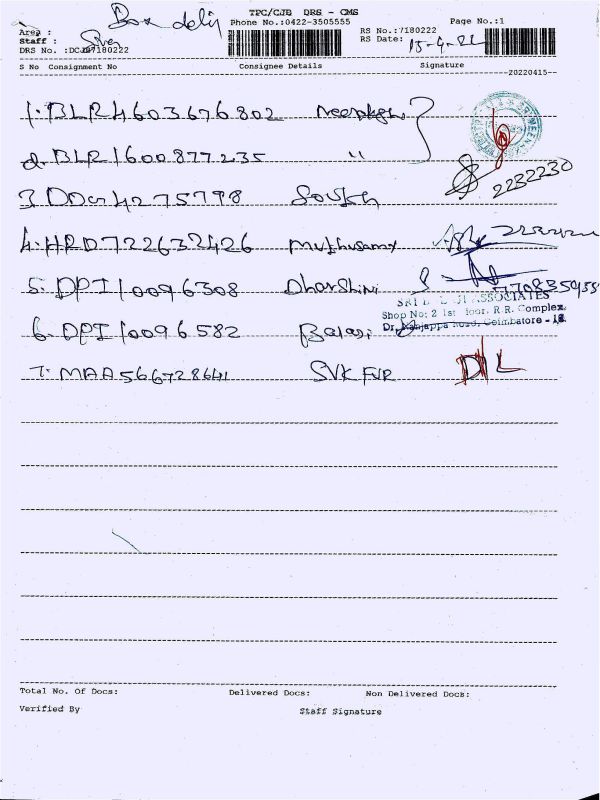 TPC/CJB DRS - CMS
Box
Phone No.:0422-3505555
Page No.:1
Area :
Staff : Siva
DRS No. :DCJB7180222
RS No.:7180222
RS Date: 15-4-22
S No Consignment No Consignee Details Signature
20220415
1. BLR4603676802
2. BLR1600877235 "
3 DDG 4275798
2232230
4. HRD722632426 Muthusamy
5. DPI10096308 Dharshini
SRI ASSOCIATES
Shop No: 2 1st Floor, R.R. Complex,
6. DPI10096582 Balaji
Dr. Nanjappa Road, Coimbatore - 18.
7. MAA566728641 SVK FUR DL
Total No. Of Docs: Delivered Docs: Non Delivered Docs:
Verified By Staff Signature